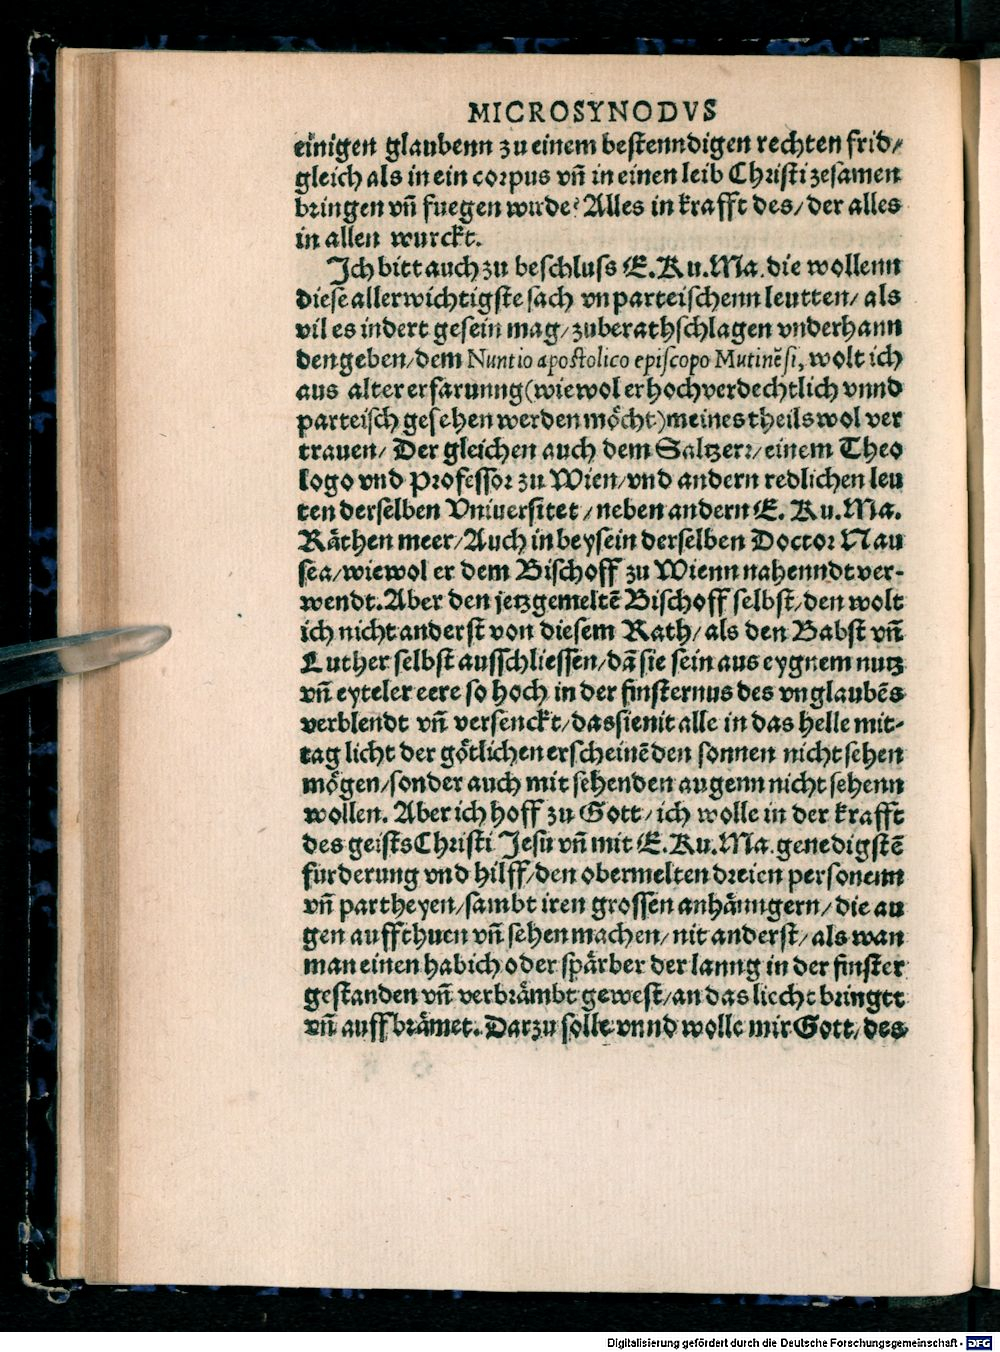 MICROSYNODVS
einigen glaubenn zu einem bestenndigen rechten frid/
gleich als in ein corpus vñ in einen leib Christi zesamen
bringen vñ fuegen wurde? Alles in krafft des/ der alles
in allen wurckt.
Ich bitt auch zu beschluss E. Ku. Ma. die wollenn
diese allerwichtigste sach vnparteischenn leutten/ als
vil es indert gesein mag/ zuberathschlagen vnderhann
dengeben/ dem Nuntio apostolico episcopo Mutinēsi, wolt ich
aus alter erfarunng (wiewol er hochverdechtlich vnnd
parteisch gesehen werden möcht) meines theils wol ver
trauen/ Der gleichen auch dem Saltzerr/ einem Theo
logo vnd Professor zu Wien/ vnd andern redlichen leu
ten derselben Vniuersitet / neben andern E. Ku. Ma.
Räthen meer/ Auch in beysein derselben Doctor Nau
sea/ wiewol er dem Bischoff zu Wienn nahenndt ver-
wendt. Aber den jetzgemeltē Bischoff selbst/ den wolt
ich nicht anderst von diesem Rath/ als den Babst vñ
Luther selbst ausschliessen/ dā sie sein aus eygnem nutz
vñ eyteler eere so hoch in der finsternus des vnglaubēs
verblendt vñ versenckt/ das sie nit alle in das helle mit-
tag licht der götlichen erscheinēden sonnen nicht sehen
mögen/ sonder auch mit sehenden augenn nicht sehenn
wollen. Aber ich hoff zu Gott/ ich wolle in der krafft
des geists Christi Jesu vñ mit E. Ku. Ma. genedigstē
fürderung vnd hilff/ den obermelten dreien personenn
vñ partheyen/ sambt iren grossen anhänngern/ die au
gen auffthuen vñ sehen machen/ nit anderst/ als wan
man einen habich oder spärber der lanng in der finster
gestanden vñ verbrämbt gewest/ an das liecht bringtt
vñ auffbrämet. Darzu solle vnnd wolle mir Gott/ des
Digitalisierung gefördert durch die Deutsche Forschungsgemeinschaft - DFG